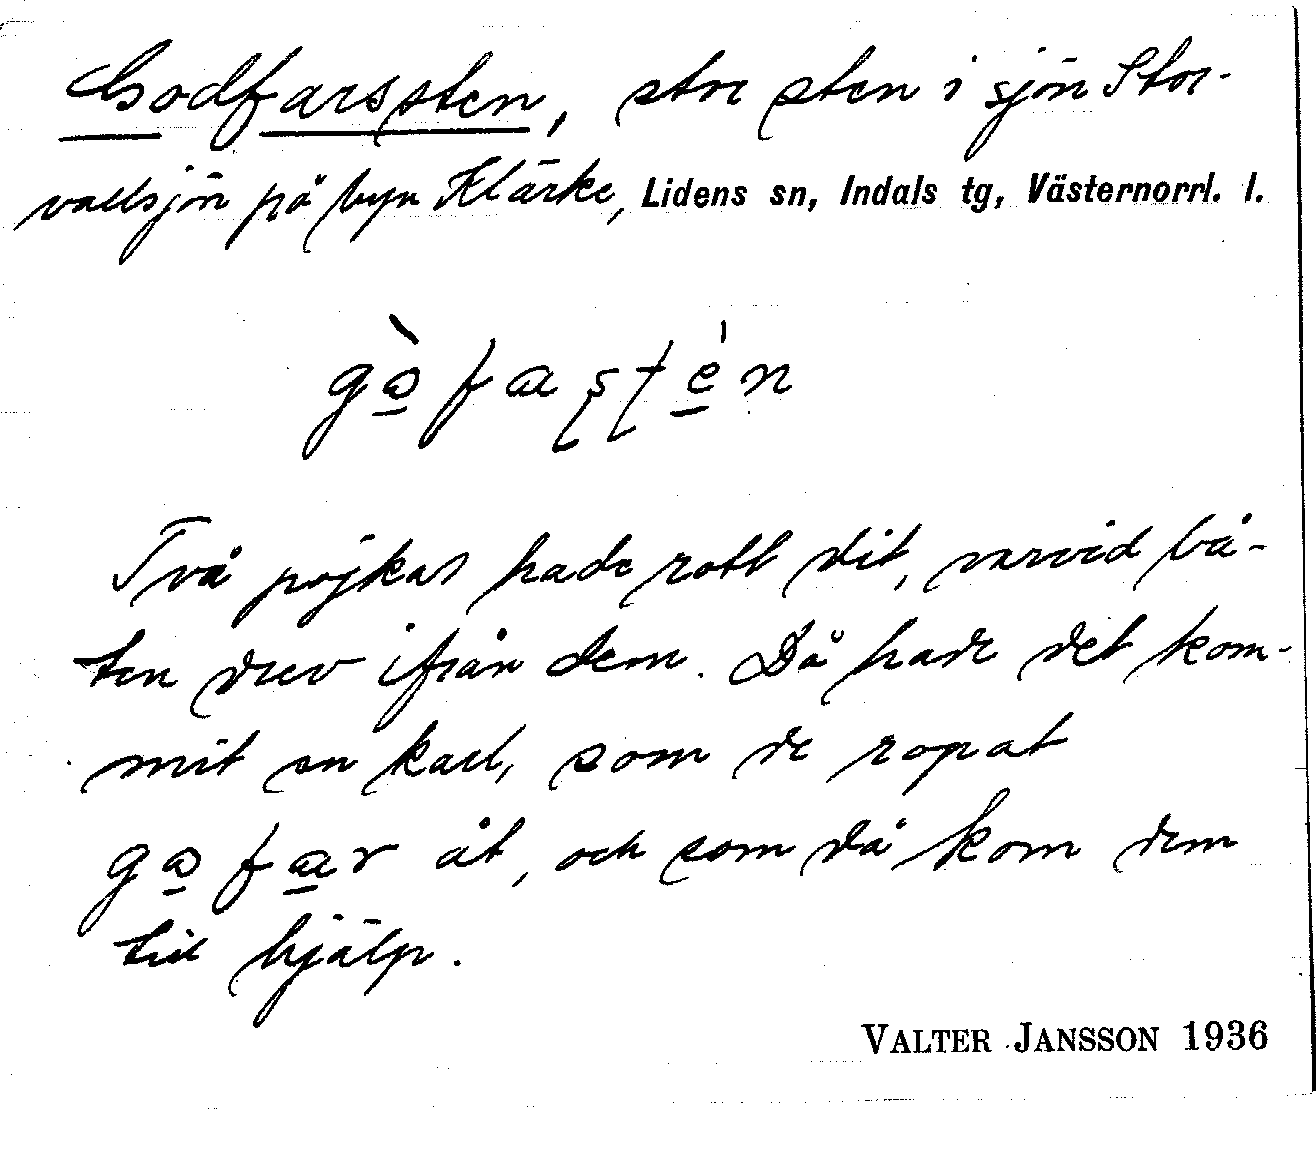 Godfarssten, stor sten i sjön Stor-
vallsjön på byn Klärke, Lidens sn, Indals tg, Västernorrl. l.
gòfasten
Två pojkar hade rott dit, varvid bå-
ten drev ifrån dem. Då hade det kom-
mit en karl, som de ropat
gofar åt, och som då kom dem
till hjälp.
VALTER JANSSON 1936